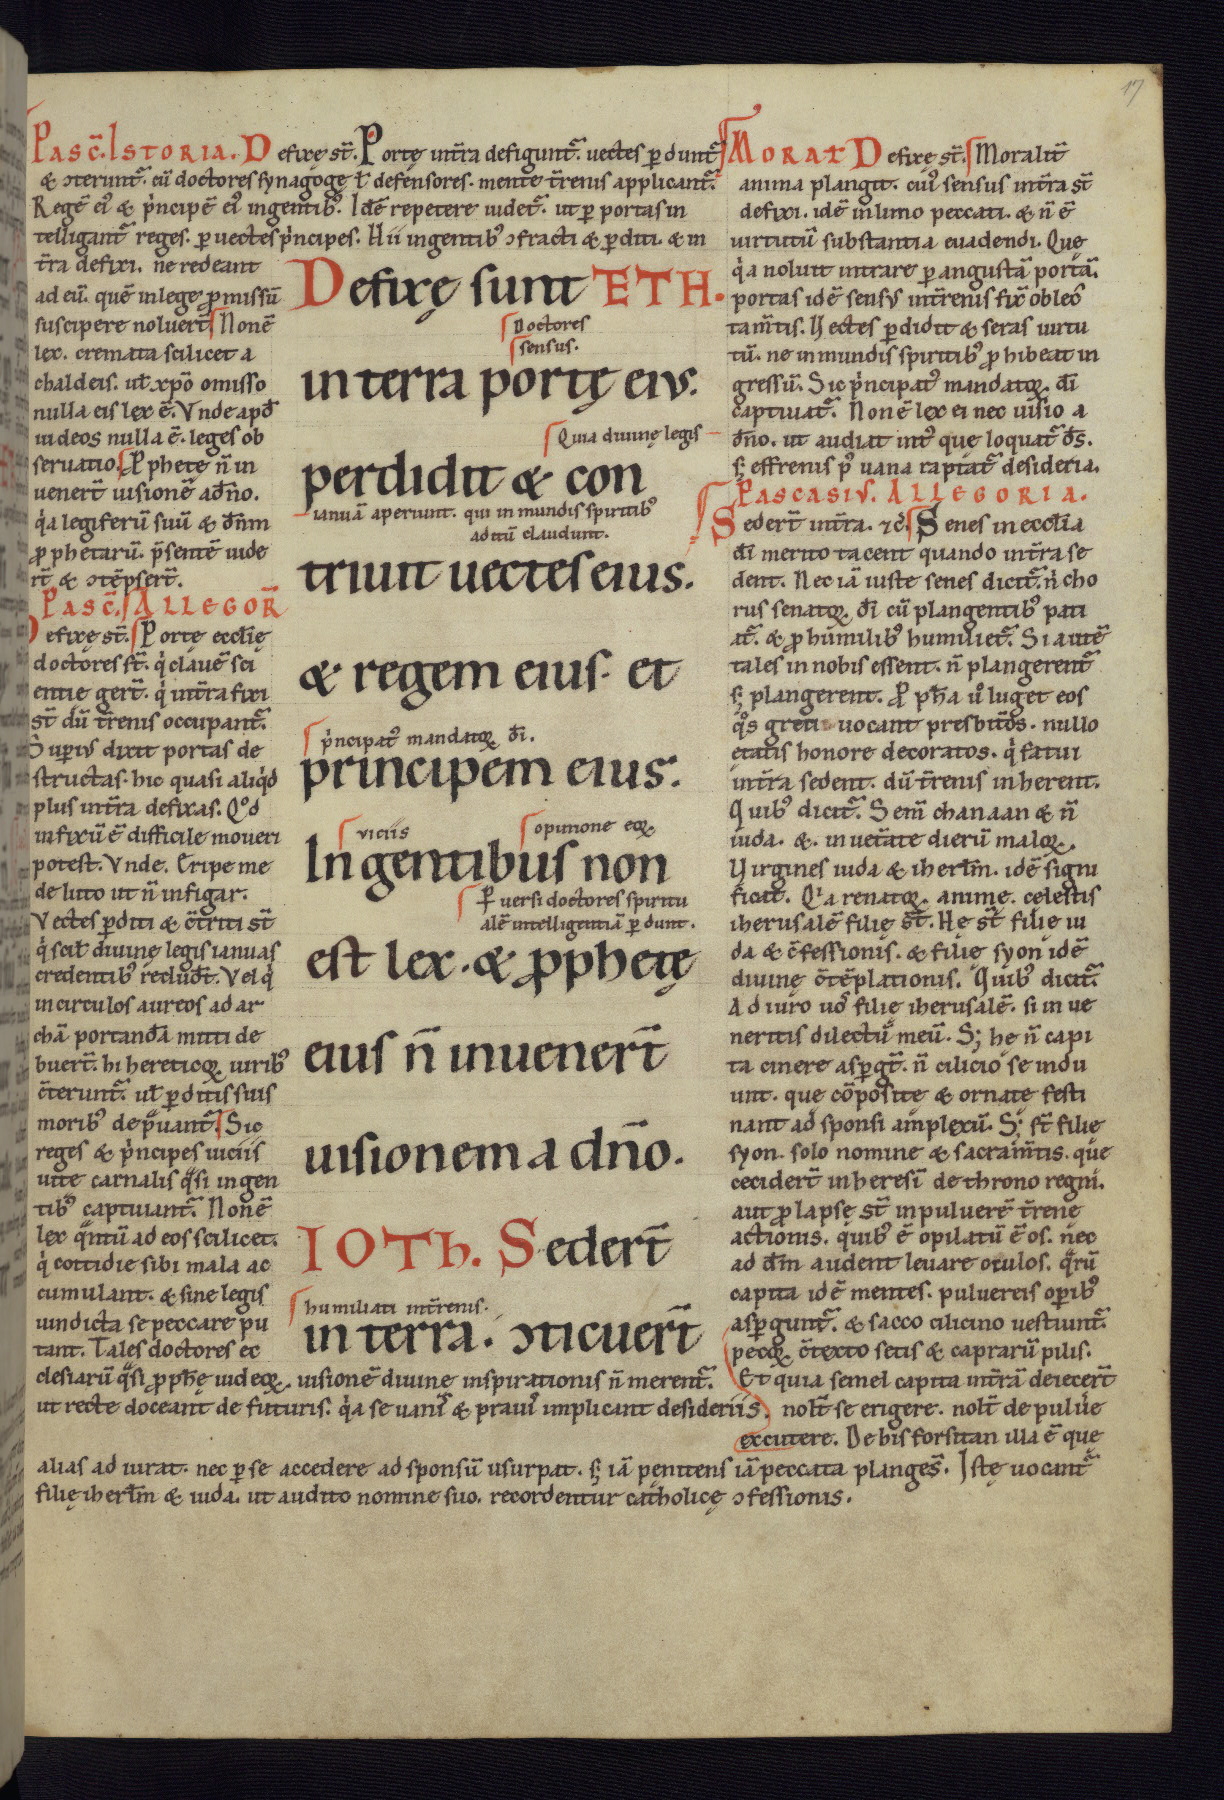 17
PASC̄. ISTORIA. Defixę st̄. Portę int̄ra defigunt᷑. uectes ꝑdunt᷑
& ↄterunt᷑. cū doctores synagogę ł defensores. mente t̄renis applicant᷑.
Regē eiꝰ & p̍ncipē eiꝰ ingentibꝰ. Idē repetere uidet᷑. ut ꝑ portas in
telligant᷑ reges. ꝑ uectes p̍ncipes. Hii ingentibꝰ ↄfracti & ꝑditi. & in
t̄ra defixi. ne redeant
ad eū. quē in lege ꝓmissū
suscipere noluert̄ Non ē
lex. cremata scilicet a
chaldeis. ut̄ xp̄o omisso
nulla eis lex ē. Vnde apđ
iudeos nulla ē. leges ob
seruatio. Prophetę n̄ in
uenert̄ uisionē a dn̄o.
q̍a legiferū suū & dn̄m
ꝓphetarū. p̄sentē uide
rt̄ & ↄtēpsert̄.
PASC̄. ALLEGOR̄
Defixę st̄. Portę eccłię
doctores st̄. q̍ clauē sci
entię gert̄. q̍ int̄ra fixi
st̄ dū t̄renis occupant᷑.
Superiꝰ dixit portas de
structas. hic quasi aliq̍d
plus int̄ra defixas. Qͦd
infixū ē difficile moueri
potest. Vnde. Eripe me
de luto ut n̄ infigar.
Vectes ꝑditi & c̄triti st̄
q̍ scit̄ diuinę legis ianuas
credentibꝰ reclud̄t. Vel q̍
in circulos aureos ad ar
chā portandā mitti de
buert̄. hi hereticoꝝ uiribꝰ
c̄terunt᷑. ut̄ ꝑditis suis
moribꝰ dep̄uant᷑ Sic
reges & p̍ncipes uiciis
uite carnalis qͣsi in gen
tibꝰ captiuant᷑. Non ē
lex qͣntū ad eos scilicet.
q̍ cottidie sibi mala ac
cumulant. & sine legis
uindicta se peccare pu
tant. Tales doctores ec
clesiarū qͣsi ꝓph̄ę iudeoꝝ. uisionē diuinę inspirationis n̄ merent᷑.
ut recte doceant de futuris. q̍a se uaniꝰ & prauiꝰ implicant desideriis.
Defixę sunt TETH.
Doctores
sensus.
in terra portę eiꝰ.
Quia diuinę legis
perdidit & con
ianuā aperiunt. qui in mundis spiritibꝰ
aditū claudunt.
triuit uectes eius.
& regem eius. et
p̍ncipatꝰ mandatoꝝ di̅.
principem eius.
viciis
opinione eoꝝ
In gentibus non
Ꝑuersi doctores spiritu
alē intelligentiā ꝑdunt.
est lex. & ꝓphetę
eius n̄ inuenert̄
uisionem a dn̄o.
IOTH. Sedert̄
humiliati in t̄renis.
in terra. ↄticuert̄
MORAŁ Defixę st̄. Moralit̄
anima plangit. cuiꝰ sensus int̄ra st̄
defixi. idē in limo peccati. & n̄ ē
uirtutū substantia euadendi. Quę
q̍a noluit intrare ꝑ angustā portā.
portas idē sensꝰ int̄renis fix̄ oblec̄
tam̄tis. Vectes ꝑdidit & seras uirtu
tū. ne in mundis spiritibꝰ ꝓhibeat in
gressū. Sic p̍ncipatꝰ mandatoꝝ. di̅
captiuat᷑. Non ē lex ei nec uisio a
dn̄o. ut audiat int̄ que loquat᷑ d̄s.
sꝫ effrenis ꝑ uana raptat᷑ desideria.
PASCASIVS. ALLEGORIA.
Sedert̄ int̄ra. ⁊c̄. Senes in eccłia
di̅ merito tacent quando int̄ra se
dent. Nec iā iuste senes dicit᷑. n̄ cho
rus senatoꝝ. di̅ cū plangentibꝰ pati
at᷑. & ꝓ humilibꝰ humiliet᷑. Si autē
tales in nobis essent. n̄ plangerent᷑
sꝫ plangerent. Propha uͦ luget eos
qͦs greci uocant presbit̄os. nullo
etatis honore decoratos. q̍ fatui
int̄ra sedent. dū t̄renis inherent.
Quibꝰ dicit᷑. Sem̄ chanaan & n̄
iuda. &. inuet̄ate dierū maloꝝ.
Virgines iuda & iherłm. idē signi
ficat. Q̍a renatoꝝ. anime. celestis
iherusalē filię st̄. Hę st̄ filię iu
da & c̄fessionis. & filię syon idē
diuinę c̄tēplationis. Quibꝰ dicit᷑
Adiuro uoͦ filię iherusalē. si inue
neritis dilectū meū. Sꝫ hę n̄ capi
ta cinere aspergt̄. n̄ cilicio se indu
unt. que cōposite & ornate festi
nant ad sponsi amplexū. Sꝫ st̄ filię
syon. solo nomine & sacram̄tis. que
cecidert̄ in heresī de throno regni.
aut ꝓlapsę st̄ in puluerē t̄renę
actionis. quibꝰ ē opilatū ē os. nec
ad dn̄m audent leuare oculos. qͣrū
capita idē mentes. puluereis oꝑibꝰ
aspergunt᷑. & sacco cilicino uestiunt᷑
pecoꝝ c̄texto setis & caprarū pilis.
Et quia semel capita int̄rā deiecert̄
nolt̄ se erigere. nolt̄ de puluͥe
excutere. De his forsitan illa ē que
alias adiurat. nec ꝑ se accedere ad sponsū usurpat. sꝫ iā penitens iā peccata planges̄. Istę uocant᷑
filię iherłm & iuda. ut audito nomine suo. recordentur catholicę ↄfessionis.